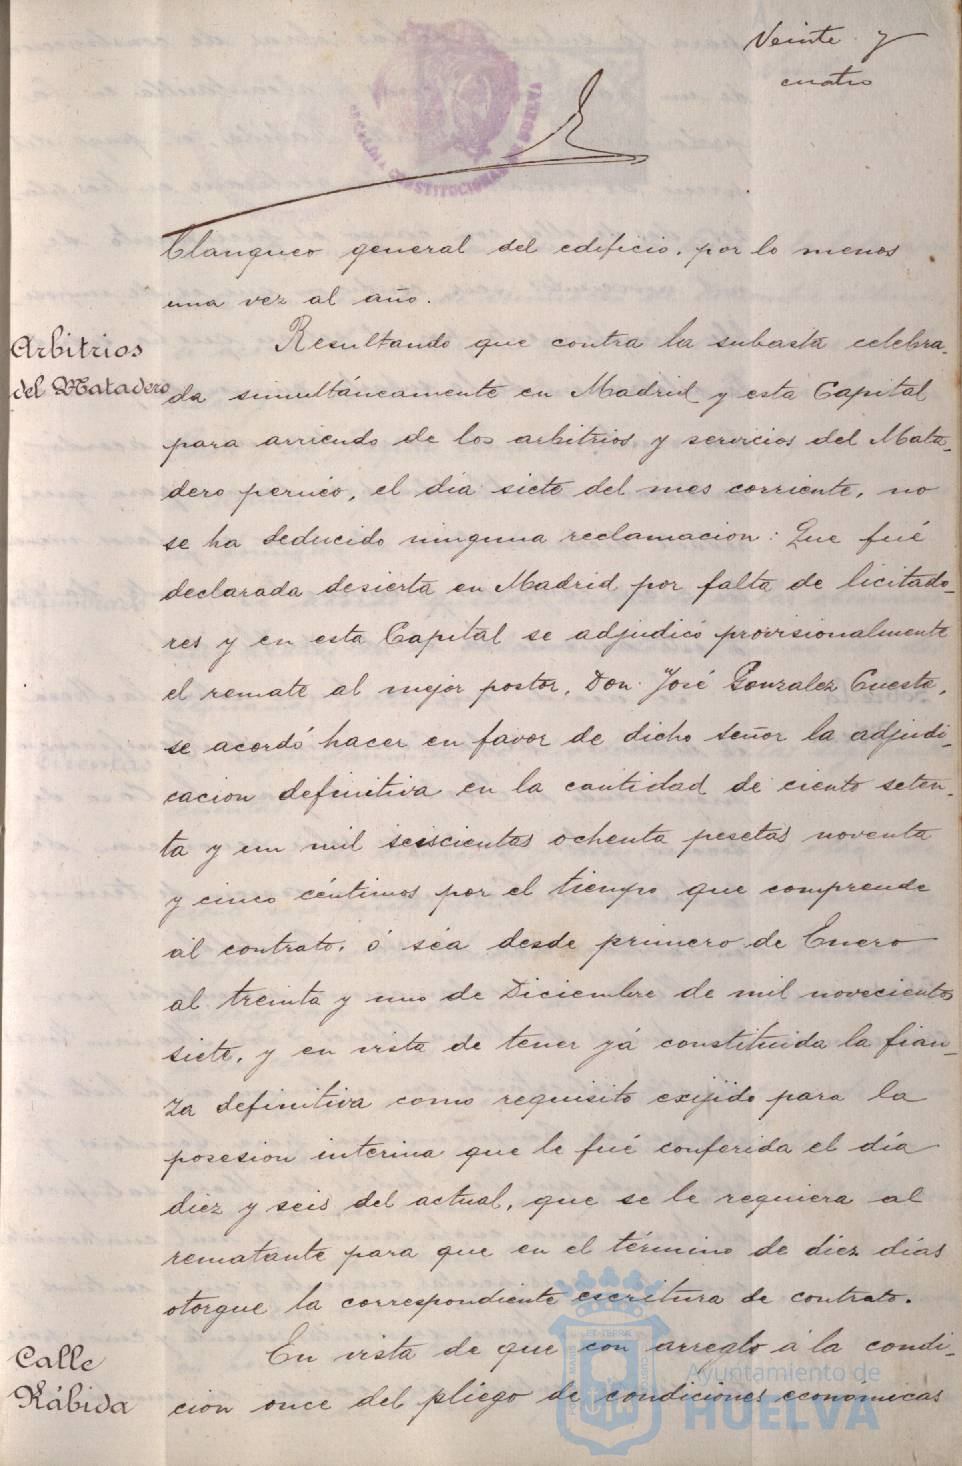 Veinte y
cuatro
ALCALDIA CONSTITUCIONAL DE HUELVA
blanqueo general del edificio, por lo menos
una vez al año.
Arbitrios
del Matadero
Resultando que contra la subasta celebra-
da simultáneamente en Madrid y esta Capital
para arriendo de los arbitrios y servicios del Mata-
dero perúco, el dia siete del mes corriente, no
se ha deducido ninguna reclamacion: Que fué
declarada desierta en Madrid por falta de licitado-
res y en esta Capital se adjudicó provisionalmente
el remate al mejor postor, Don José Gonzalez Cuesta,
se acordó hacer en favor de dicho señor la adjudi-
cacion definitiva en la cantidad de ciento seten-
ta y un mil seiscientas ochenta pesetas noventa
y cinco céntimos por el tiempo que comprende
al contrato, ó séa desde primero de Enero
al treinta y uno de Diciembre de mil novecientos
siete, y en vista de tener yá constituida la fian-
za definitiva como requisito exijido para la
posesion interina que le fué conferida el día
diez y seis del actual, que se le requiera al
rematante para que en el término de diez días
otorgue la correspondiente escritura de contrato.
Calle
Rábida
En vista de que con arreglo á la condi-
cion once del pliego de condiciones economicas
Ayuntamiento de
HUELVA